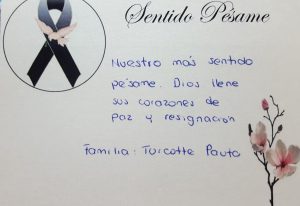 Sentido Pésame
Nuestro más sentido
pésame. Dios llene
sus corazones de
paz y resignación
Familia: Turcotte Pauta